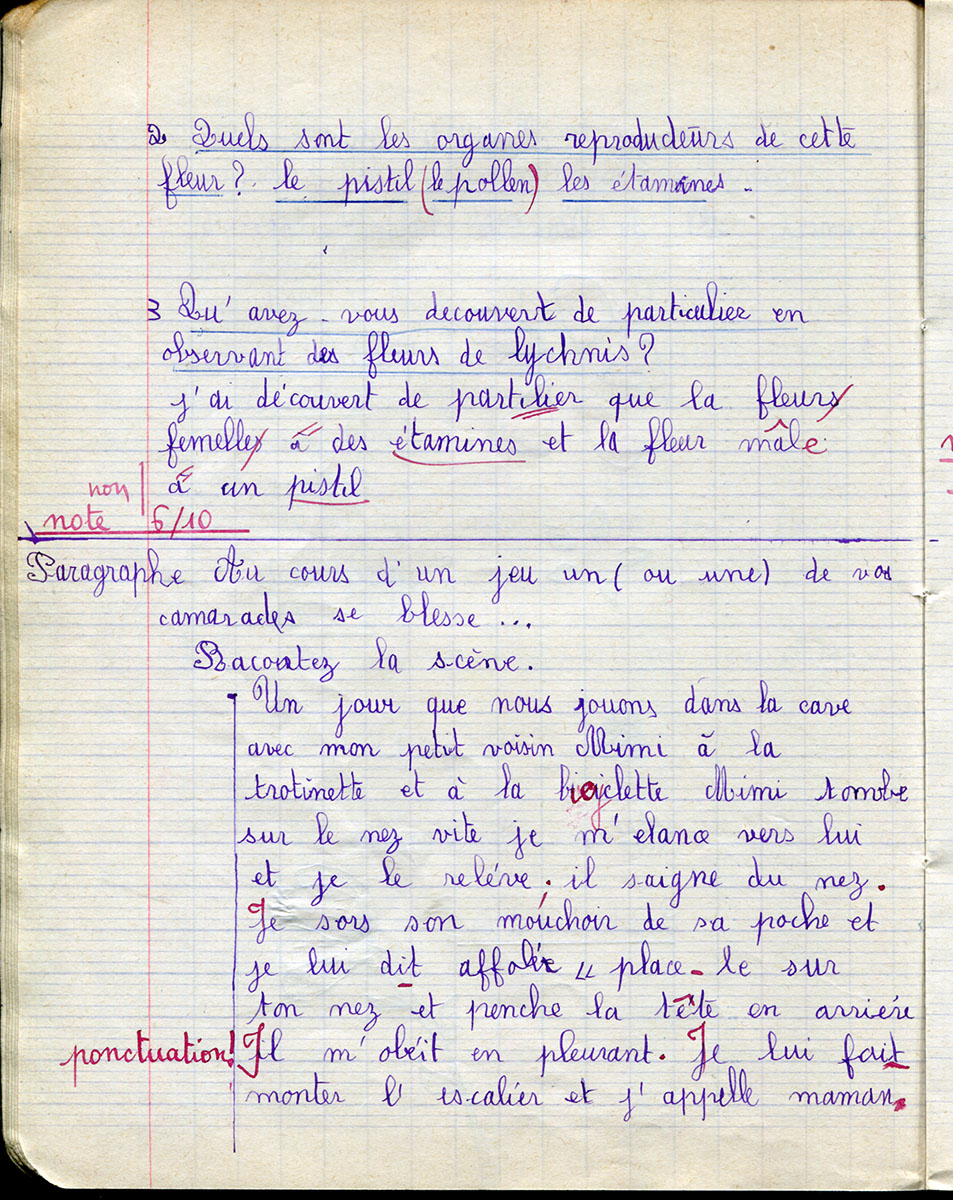 2 Quels sont les organes reproducteurs de cette
fleur? le pistil (le pollen) les étamines.
3 Qu'avez-vous decouvert de particulier en
observant des fleurs de lychnis?
j'ai découvert de partilier que la fleurs
femelles à des étamines et la fleur mâle
à un pistil
non
note 6/10
Paragraphe Au cours d'un jeu un (ou une) de vos
camarades se blesse...
Racontez la scène.
Un jour que nous jouons dans la cave
avec mon petit voisin Mimi à la
trotinette et à la bicyclette Mimi tombe
sur le nez vite je m'elance vers lui
et je le reléve. il saigne du nez.
Je sors son mouchoir de sa poche et
je lui dit affolée " place-le sur
ton nez et penche la tête en arriére
ponctuation! Il m'obéit en pleurant. Je lui fait
monter l'escalier et j'appelle maman.